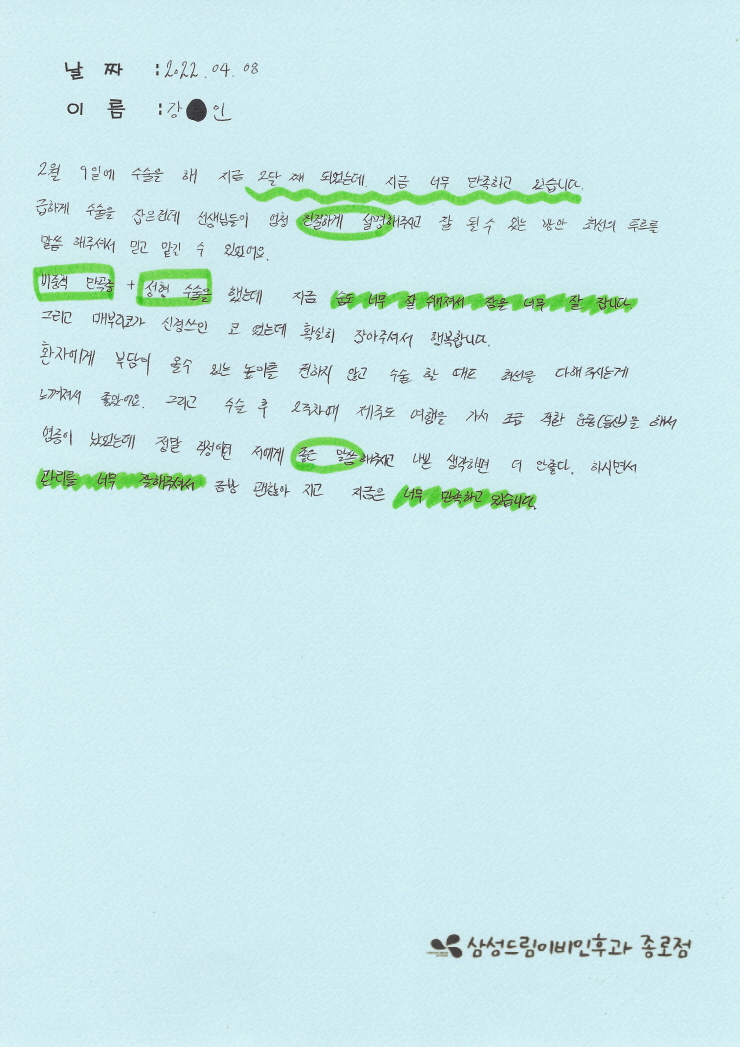 날 짜 : 2022. 04. 08
이 름 : 강 인
2월 9일에 수술을 해 지금 2달 째 되었는데 지금 너무 만족하고 있습니다.
급하게 수술을 잡은건데 선생님들이 엄청 친절하게 설명해주시고 잘 될 수 있는 방안 최선의 루트를
말씀 해주셔서 믿고 맡길 수 있었어요.
비중격 만곡증 + 성형 수술을 했는데 지금 숨도 너무 잘 쉬어져서 잠을 너무 잘 잡니다.
그리고 매부리코가 신경쓰인 코 였는데 확실히 잡아주셔서 행복합니다.
환자에게 부담이 올수 있는 높이를 권하지 않고 수술 할 때도 최선을 다해주시는게
느껴져서 좋았어요. 그리고 수술 후 2주차때 제주도 여행을 가서 조금 격한 운동(등산)을 해서
염증이 났었는데 정말 걱정이던 저에게 좋은 말씀해주시고 나쁜 생각하면 더 안좋다. 하시면서
관리를 너무 잘해주셔서 금방 괜찮아 지고 지금은 너무 만족하고 있습니다.
삼성드림이비인후과 종로점